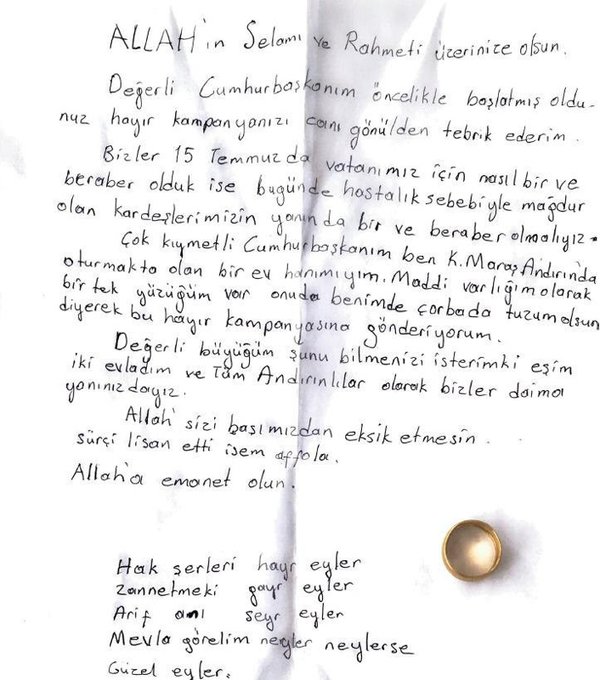 ALLAH'ın Selamı ve Rahmeti üzerinize olsun.
Değerli Cumhurbaşkanım öncelikle başlatmış oldu-
nuz hayır kampanyanızı canı gönülden tebrik ederim.
Bizler 15 Temmuzda vatanımız için nasıl bir ve
beraber olduk ise bugünde hastalık sebebiyle mağdur
olan kardeşlerimizin yanında bir ve beraber olmalıyız.
Çok kıymetli Cumhurbaşkanım ben K.Maraş Andırında
oturmakta olan bir ev hanımıyım. Maddi varlığım olarak
bir tek yüzüğüm var onuda benimde çorbada tuzum olsun
diyerek bu hayır kampanyasına gönderiyorum.
Değerli büyüğüm şunu bilmenizi isterimki eşim
iki evladım ve Tüm Andırınlılar olarak bizler daima
yanınızdayız.
Allah' sizi başımızdan eksik etmesin.
sürçi lisan etti isem affola.
Allah'a emanet olun.
Hak şerleri hayr eyler
zannetmeki gayr eyler
Arif anı seyr eyler
Mevla görelim neyler neylerse
Güzel eyler.